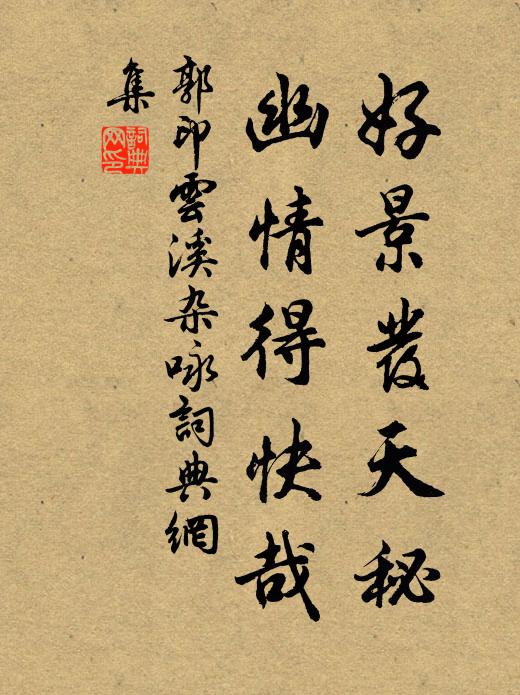 好景發天秘
幽情得快哉
郭印雲溪杂咏詞典網
集
詞典網印